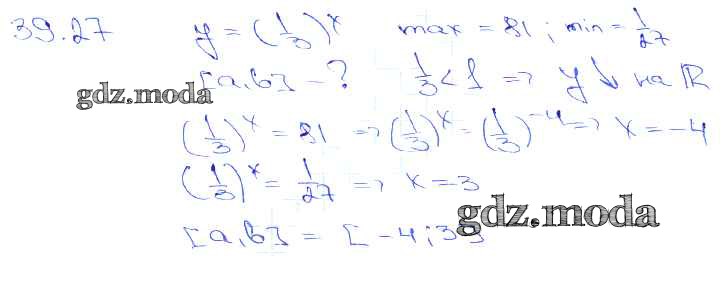 39.27 y = (1/3)^x max = 81; min = 1/27
[a,b] - ? 1/3 < 1 => y ↓ на ℝ
gdz.moda
(1/3)^x = 81 => (1/3)^x = (1/3)^-4 => x = -4
(1/3)^x = 1/27 => x = 3
gdz.moda
[a,b] = [-4;3]